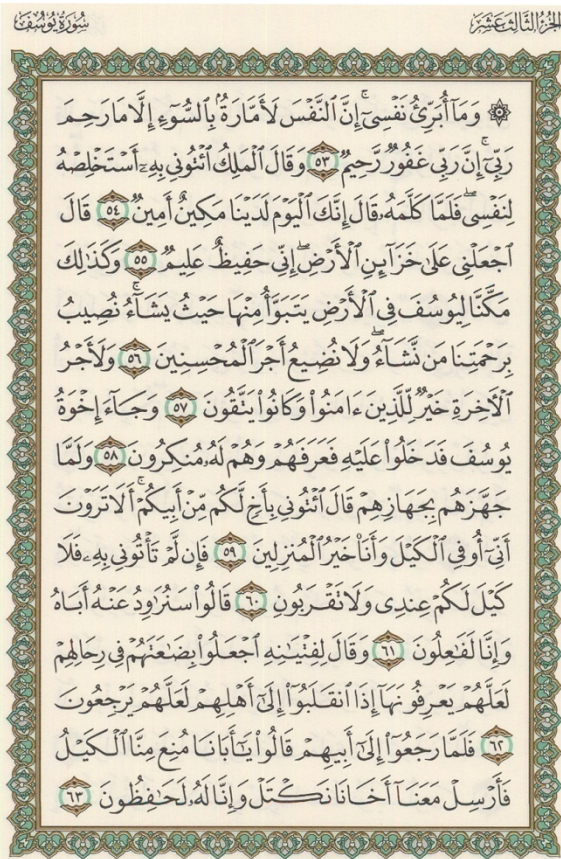 الجزء الثالث عشر
سورة يوسف
۞ وَمَآ أُبَرِّئُ نَفْسِىٓ ۚ إِنَّ ٱلنَّفْسَ لَأَمَّارَةُۢ بِٱلسُّوٓءِ إِلَّا مَا رَحِمَ
رَبِّىٓ ۚ إِنَّ رَبِّى غَفُورٌ رَّحِيمٌ ٥٣ وَقَالَ ٱلْمَلِكُ ٱئْتُونِى بِهِۦٓ أَسْتَخْلِصْهُ
لِنَفْسِى ۖ فَلَمَّا كَلَّمَهُۥ قَالَ إِنَّكَ ٱلْيَوْمَ لَدَيْنَا مَكِينٌ أَمِينٌ ٥٤ قَالَ
ٱجْعَلْنِى عَلَىٰ خَزَآئِنِ ٱلْأَرْضِ ۖ إِنِّى حَفِيظٌ عَلِيمٌ ٥٥ وَكَذَٰلِكَ
مَكَّنَّا لِيُوسُفَ فِى ٱلْأَرْضِ يَتَبَوَّأُ مِنْهَا حَيْثُ يَشَآءُ ۚ نُصِيبُ
بِرَحْمَتِنَا مَن نَّشَآءُ ۖ وَلَا نُضِيعُ أَجْرَ ٱلْمُحْسِنِينَ ٥٦ وَلَأَجْرُ
ٱلْـَٔاخِرَةِ خَيْرٌ لِّلَّذِينَ ءَامَنُوا۟ وَكَانُوا۟ يَتَّقُونَ ٥٧ وَجَآءَ إِخْوَةُ
يُوسُفَ فَدَخَلُوا۟ عَلَيْهِ فَعَرَفَهُمْ وَهُمْ لَهُۥ مُنكِرُونَ ٥٨ وَلَمَّا
جَهَّزَهُم بِجَهَازِهِمْ قَالَ ٱئْتُونِى بِأَخٍ لَّكُم مِّنْ أَبِيكُمْ ۚ أَلَا تَرَوْنَ
أَنِّىٓ أُوفِى ٱلْكَيْلَ وَأَنَا۠ خَيْرُ ٱلْمُنزِلِينَ ٥٩ فَإِن لَّمْ تَأْتُونِى بِهِۦ فَلَا
كَيْلَ لَكُمْ عِندِى وَلَا تَقْرَبُونِ ٦٠ قَالُوا۟ سَنُرَٰوِدُ عَنْهُ أَبَاهُ
وَإِنَّا لَفَٰعِلُونَ ٦١ وَقَالَ لِفِتْيَٰنِهِ ٱجْعَلُوا۟ بِضَٰعَتَهُمْ فِى رِحَالِهِمْ
لَعَلَّهُمْ يَعْرِفُونَهَآ إِذَا ٱنقَلَبُوٓا۟ إِلَىٰٓ أَهْلِهِمْ لَعَلَّهُمْ يَرْجِعُونَ
٦٢ فَلَمَّا رَجَعُوٓا۟ إِلَىٰٓ أَبِيهِمْ قَالُوا۟ يَٰٓأَبَانَا مُنِعَ مِنَّا ٱلْكَيْلُ
فَأَرْسِلْ مَعَنَآ أَخَانَا نَكْتَلْ وَإِنَّا لَهُۥ لَحَٰفِظُونَ ٦٣